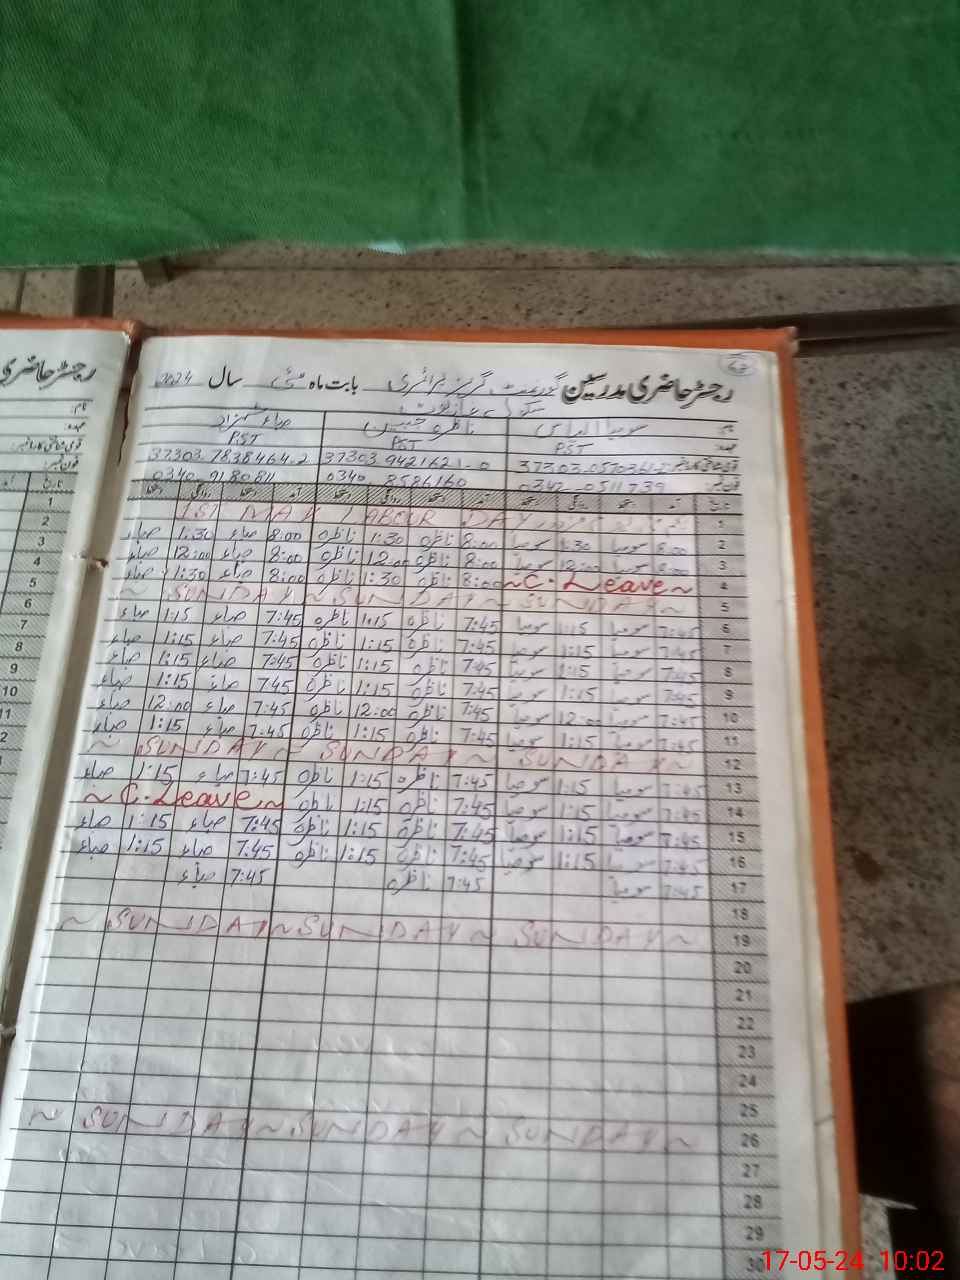 رجسٹر حاضری مدرسین گورنمنٹ گرلز پرائمری بابت ماہ مئی سال 2024
سکول
نام: سومیا ناظرہ صباء
عہدہ: PST PST PST
37303 9421621-0 37303 7838464-2
فون نمبر: 0342 0511739 0340 8586160 0340 9180811
تاریخ آمد دستخط روانگی دستخط آمد دستخط روانگی دستخط آمد دستخط روانگی دستخط
1 1ST MAY LABOUR DAY
2 8:00 سومیا 1:30 سومیا 8:00 ناظرہ 1:30 ناظرہ 8:00 صباء 1:30 صباء
3 8:00 سومیا 12:00 سومیا 8:00 ناظرہ 12:00 ناظرہ 8:00 صباء 12:00 صباء
4 ~C. Leave~ 8:00 ناظرہ 1:30 ناظرہ 8:00 صباء 1:30 صباء
5 ~ SUNDAY ~ SUNDAY ~ SUNDAY ~
6 7:45 سومیا 1:15 سومیا 7:45 ناظرہ 1:15 ناظرہ 7:45 صباء 1:15 صباء
7 7:45 سومیا 1:15 سومیا 7:45 ناظرہ 1:15 ناظرہ 7:45 صباء 1:15 صباء
8 7:45 سومیا 1:15 سومیا 7:45 ناظرہ 1:15 ناظرہ 7:45 صباء 1:15 صباء
9 7:45 سومیا 1:15 سومیا 7:45 ناظرہ 1:15 ناظرہ 7:45 صباء 1:15 صباء
10 7:45 سومیا 12:00 سومیا 7:45 ناظرہ 12:00 ناظرہ 7:45 صباء 12:00 صباء
11 7:45 سومیا 1:15 سومیا 7:45 ناظرہ 1:15 ناظرہ 7:45 صباء 1:15 صباء
12 ~ SUNDAY ~ SUNDAY ~ SUNDAY ~
13 7:45 سومیا 1:15 سومیا 7:45 ناظرہ 1:15 ناظرہ 7:45 صباء 1:15 صباء
14 7:45 سومیا 1:15 سومیا 7:45 ناظرہ 1:15 ناظرہ ~ C. Leave ~
15 7:45 سومیا 1:15 سومیا 7:45 ناظرہ 1:15 ناظرہ 7:45 صباء 1:15 صباء
16 7:45 سومیا 1:15 سومیا 7:45 ناظرہ 1:15 ناظرہ 7:45 صباء 1:15 صباء
17 7:45 سومیا 7:45 ناظرہ 7:45 صباء
18
19 ~ SUNDAY ~ SUNDAY ~ SUNDAY ~
20
21
22
23
24
25
26 ~ SUNDAY ~ SUNDAY ~ SUNDAY ~
27
28
29
30
رجسٹر حاضری
نام:
عہدہ:
فون نمبر:
تاریخ
1
2
3
4
5
6
7
8
9
10
11
17-05-24 10:02